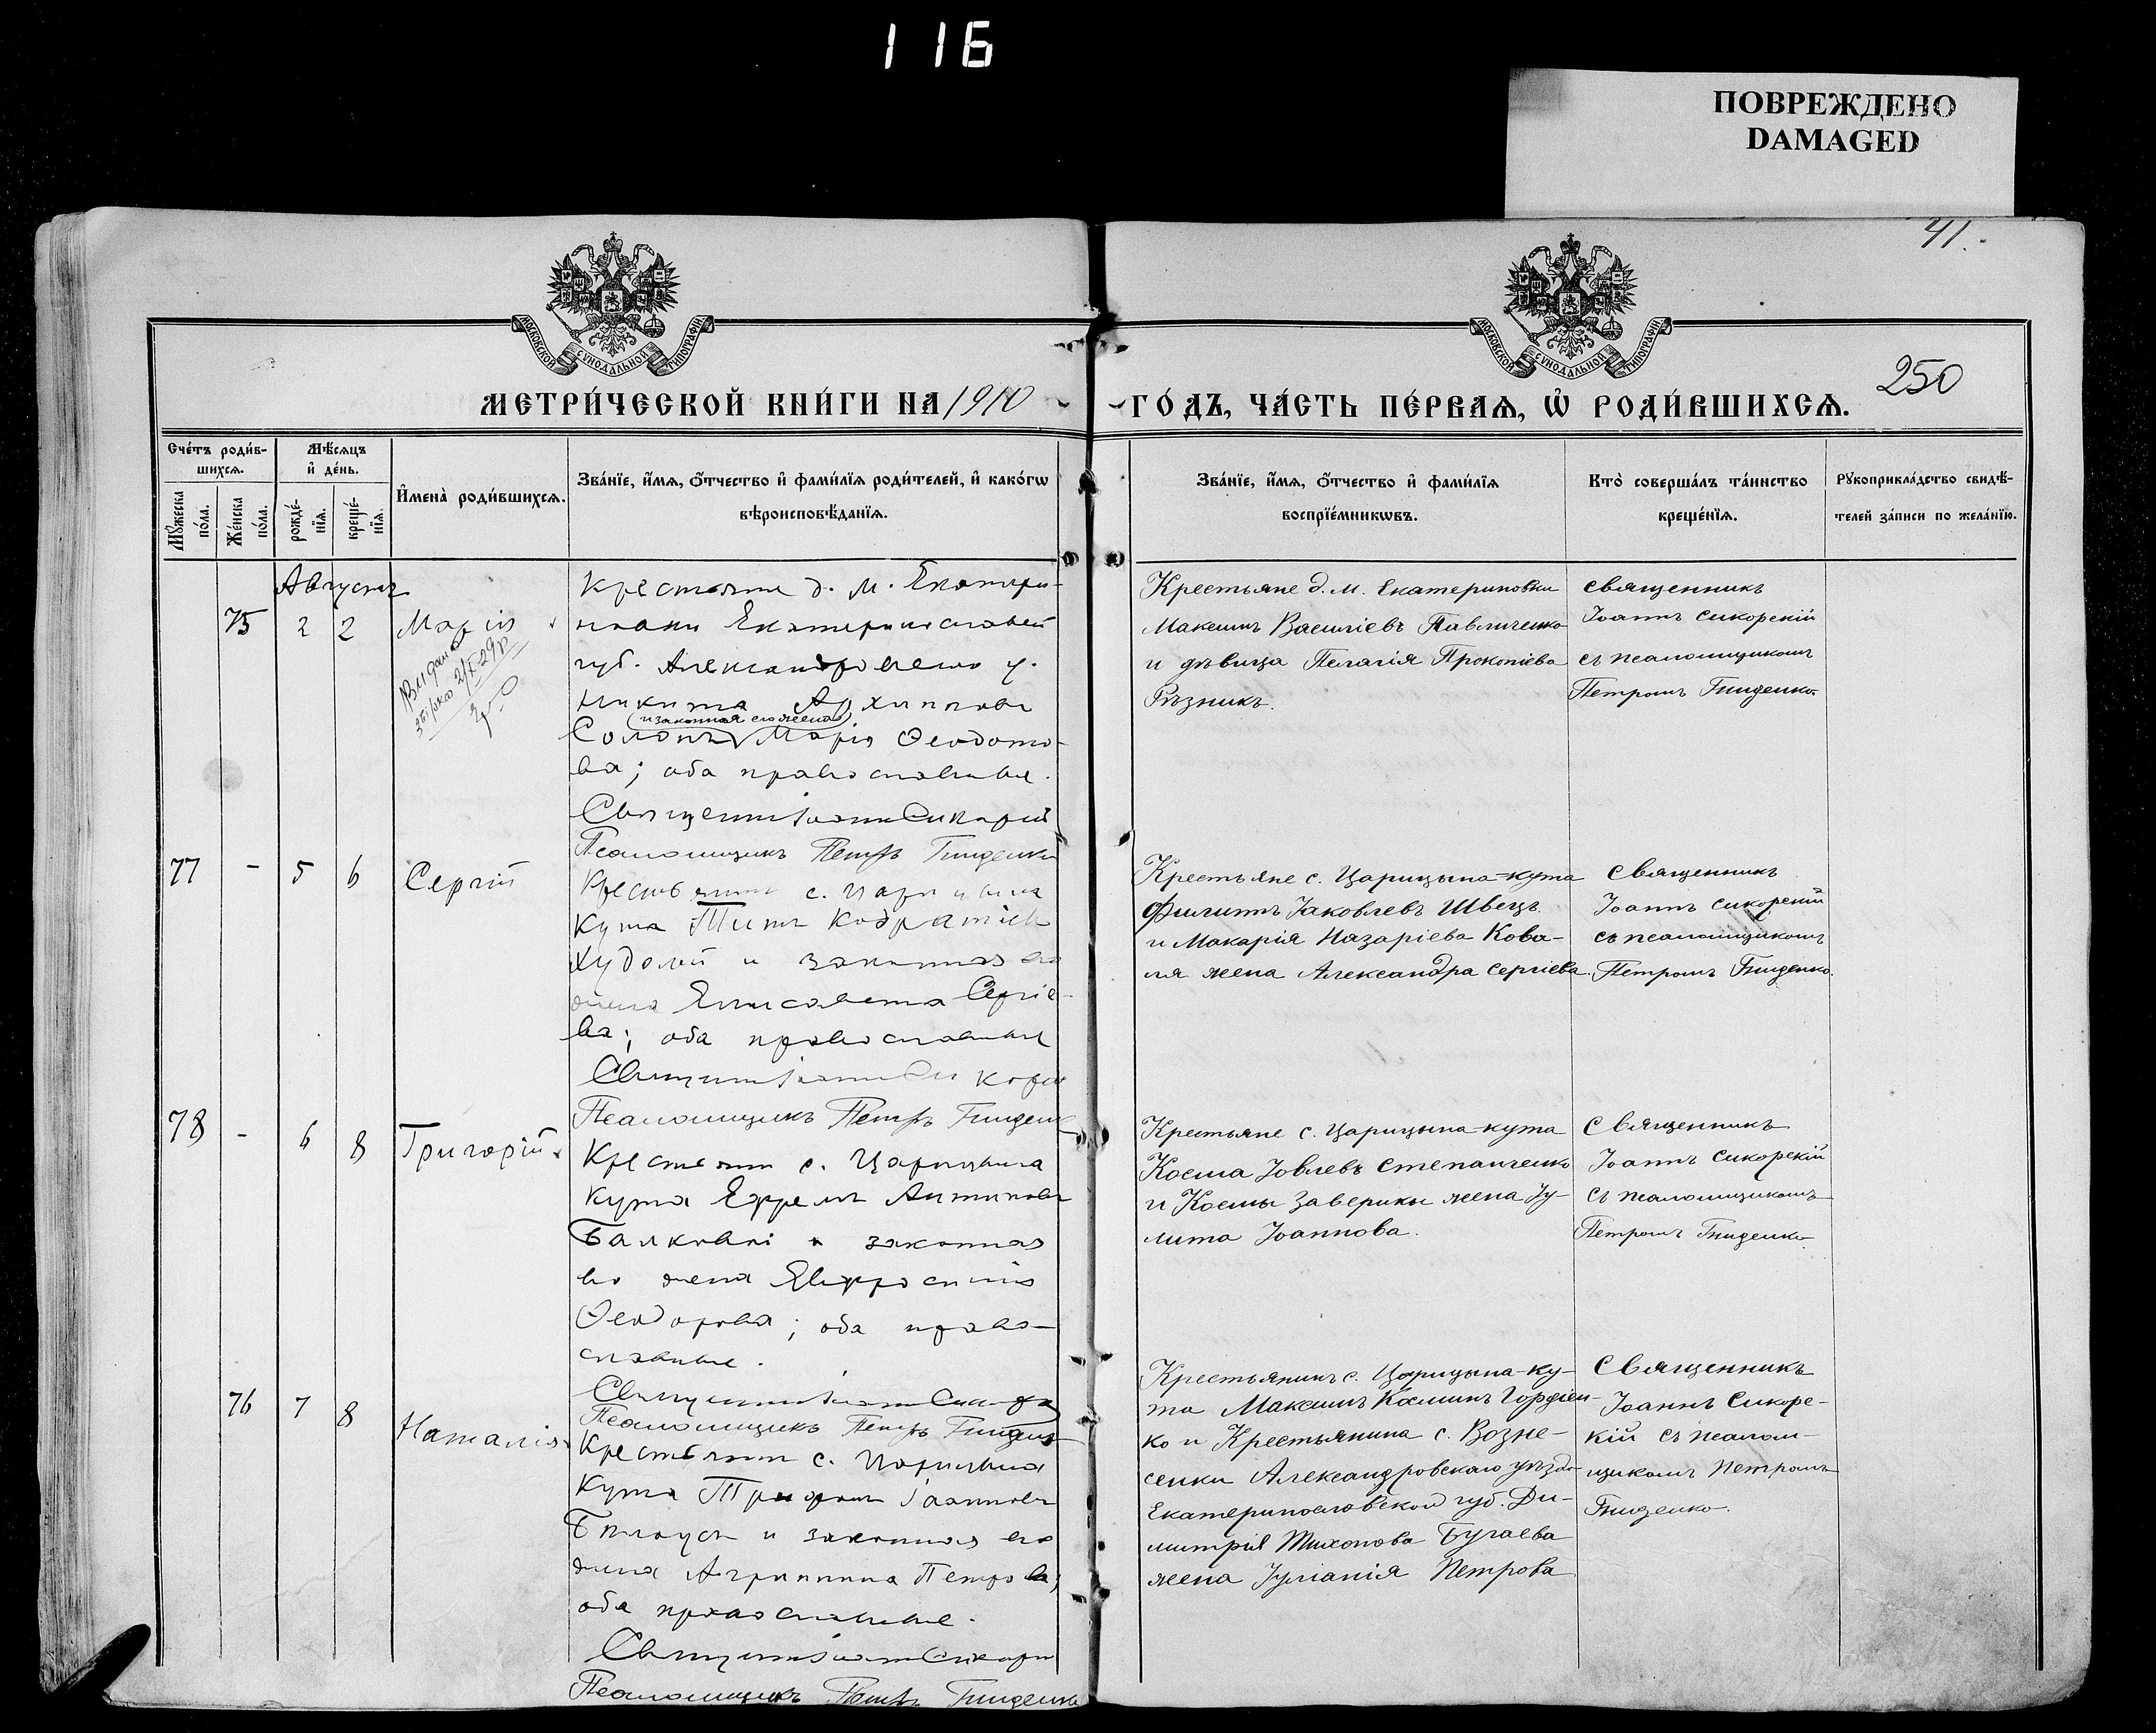 116
ПОВРЕЖДЕНО
DAMAGED
41.
МОСКОВСКОЙ СУНОДАЛЬНОЙ ТИПОГРАФІИ
МОСКОВСКОЙ СУНОДАЛЬНОЙ ТИПОГРАФІИ
250
МЕТРИ́ЧЕСКОЙ КНИ́ГИ НА 1910
ГО́ДЪ, ЧА́СТЬ ПЕ́РВАѦ, Ѡ҆ РОДИ́ВШИХСѦ.
Сче́тъ роди́в-
шихсѧ.
Мꙋ́жеска по́ла.
Же́нска по́ла.
Мѣ́сѧцъ
и҆ де́нь.
рожде́-
нїѧ.
креще́-
нїѧ.
И҆мена̀ роди́вшихсѧ.
Зва́нїе, и҆́мѧ, ѻ҆́тчество и҆ фами́лїѧ роди́телей, и҆ како́гѡ
вѣроисповѣ́данїѧ.
Зва́нїе, и҆́мѧ, ѻ҆́тчество и҆ фами́лїѧ
воспрїе́мникѡвъ.
Кто̀ соверша́лъ та́инство
креще́нїѧ.
Рꙋкоприкла́дство свидѣ́-
телей за́писи по жела́нїю.
Августъ
75 2 2 Марія
Видано
2/X 29р
Крестьяне д. М. Екатери-
новки Екатеринославской
губ. Александровскаго у.
Никита Архиповъ
(и законная его жена)
Солопъ Марія Ѳеодото-
ва; оба православные.
Священникъ Іоаннъ Сикорскій
Псаломщикъ Петръ Гниденко
Крестьяне д. М. Екатериновки
Максимъ Васильевъ Павличенко
и дѣвица Пелагія Прокопіева
Рѣзникъ.
Священникъ
Іоаннъ Сикорскій
съ псаломщикомъ
Петромъ Гниденко.
77 - 5 6 Сергій
Крестьянинъ с. Царицына
Кута Титъ Кодратіевъ
Худолей и законная его
жена Елисавета Сергіе-
ва; оба православные
Священникъ Іоаннъ Сикорскій
Псаломщикъ Петръ Гниденко
Крестьяне с. Царицына-кута
Филиппъ Іаковлевъ Швецъ
и Макарія Назаріева Кова-
ля жена Александра Сергіева.
Священникъ
Іоаннъ Сикорскій
съ псаломщикомъ
Петромъ Гниденко.
78 - 6 8 Григорій
Крестьянинъ с. Царицына
Кута Ефремъ Антиповъ
Балковой и законная
его жена Евфросинія
Ѳеодорова; оба право-
славные.
Священникъ Іоаннъ Сикорскій
Псаломщикъ Петръ Гниденко
Крестьяне с. Царицына-кута
Косма Іовлевъ Степанченко
и Космы Заверики жена Іу-
лита Іоаннова.
Священникъ
Іоаннъ Сикорскій
съ псаломщикомъ
Петромъ Гниденко.
76 7 8 Наталія
Крестьянинъ с. Царицына
Кута Трифонъ Іоанновъ
Бѣлоусъ и законная его
жена Агриппина Петрова;
оба православные.
Священникъ Іоаннъ Сикорскій
Псаломщикъ Петръ Гниденко
Крестьянинъ с. Царицына-ку-
та Максимъ Косминъ Гордіен-
ко и Крестьянина с. Возне-
сенки Александровскаго уѣзда
Екатеринославской губ. Ди-
митрія Тихонова Бугаева
жена Іуліанія Петрова
Священникъ
Іоаннъ Сикорс-
кій съ псалом-
щикомъ Петромъ
Гниденко.